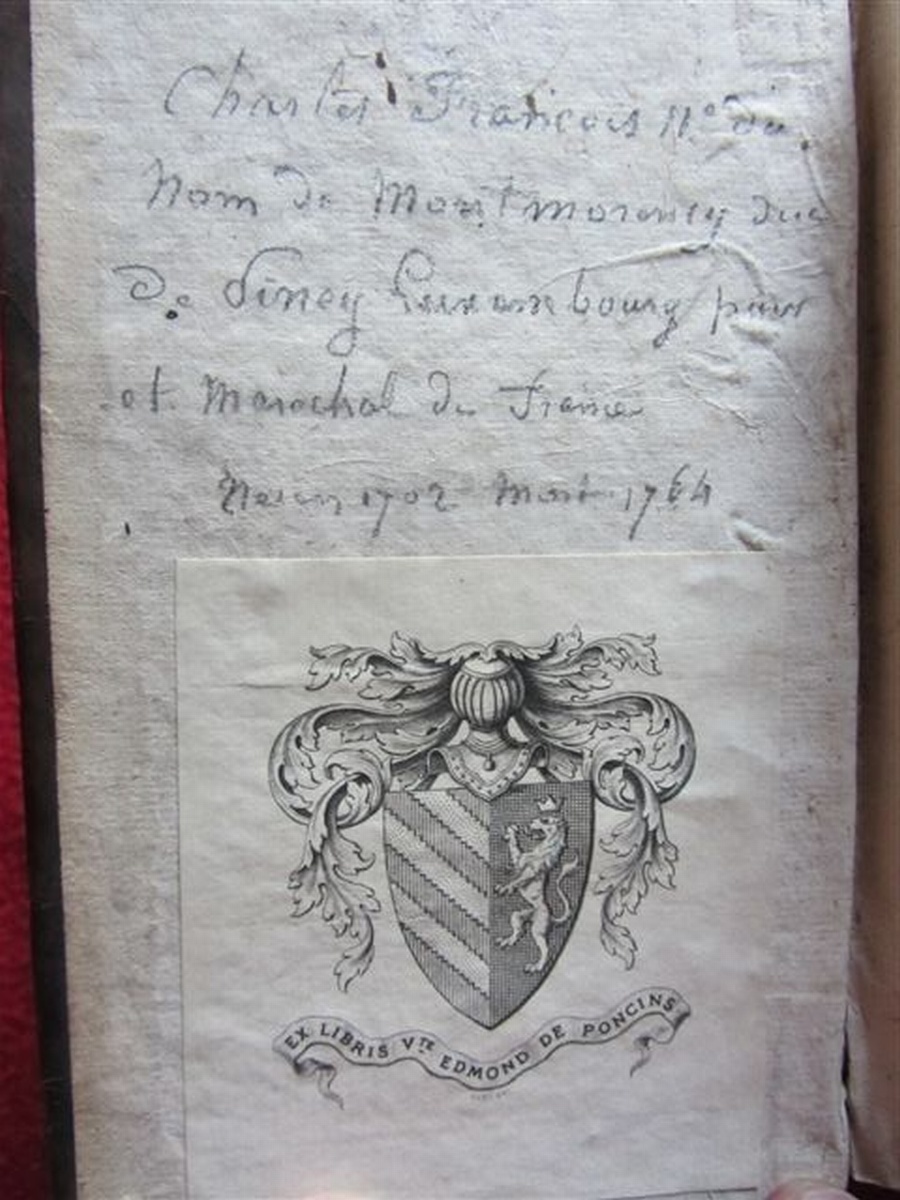 Charles François II.e du
Nom de Montmorency duc
De Piney Luxembourg pair
et Marechal de France
Nee en 1702 Mort 1764
EX LIBRIS VTE EDMOND DE PONCINS